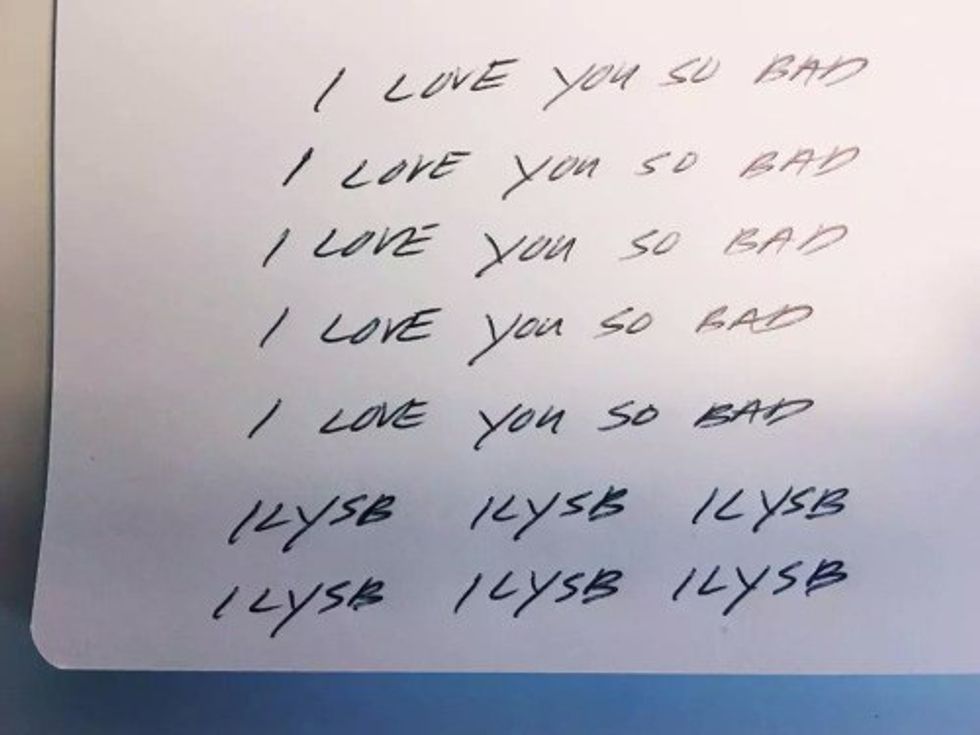 I LOVE YOU SO BAD
I LOVE YOU SO BAD
I LOVE YOU SO BAD
I LOVE YOU SO BAD
I LOVE YOU SO BAD
ILYSB ILYSB ILYSB
ILYSB ILYSB ILYSB